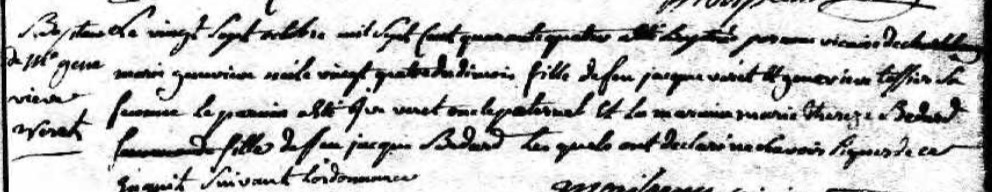 Baptême Le vingt sept octobre mil sept cent quarante quatre a été baptisé par nous vicaire de
de Me gene marie genevieve née le vingt quatre du dit mois fille de feu jacque verret et genevieve tessier sa
vieve femme le parain a été verret oncle paternel et la maraine marie therese Bedard
Verret fille de feu jacque Bedard lesquels ont declaré ne sçavoir signer de ce
enquis suivant l'ordonnance